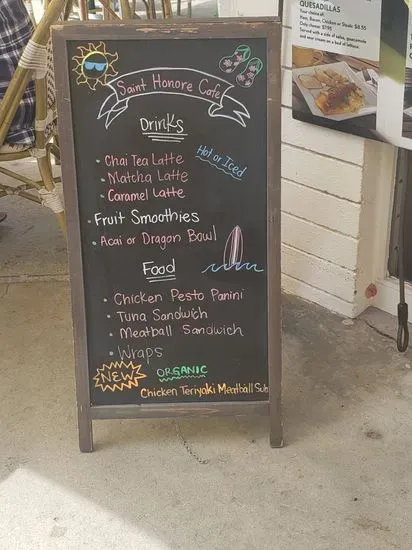 QUESADILLAS
Your choice of:
Ham, Bacon, Chicken or Steak: $8.55
Only cheese: $7.95
Served with a side of salsa, guacamole
and sour cream on a bed of lettuce.
Saint Honore Cafe
Drinks
• Chai Tea Latte
Hot or Iced
• Matcha Latte
• Caramel Latte
• Fruit Smoothies
• Acai or Dragon Bowl
Food
• Chicken Pesto Panini
• Tuna Sandwich
• Meatball Sandwich
• Wraps
NEW
ORGANIC
Chicken Teriyaki Meatball Sub